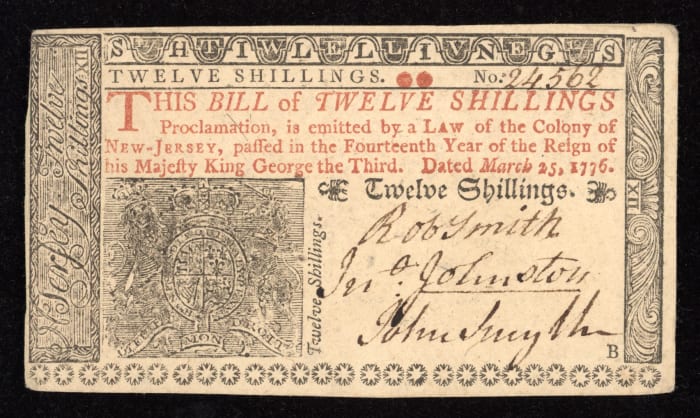 S H T I W L E L L I V N E G S
TWELVE SHILLINGS. No: 24562
THIS BILL of TWELVE SHILLINGS
Proclamation, is emitted by a LAW of the Colony of
NEW-JERSEY, paſſed in the Fourteenth Year of the Reign of
his Majeſty King George the Third. Dated March 25, 1776.
Twelve Shillings.
Rob Smith
Jnº. Johnston
John Smyth
B
Twelve Shillings.
MON
N Jerſey Twelve
Shillings XII
XII